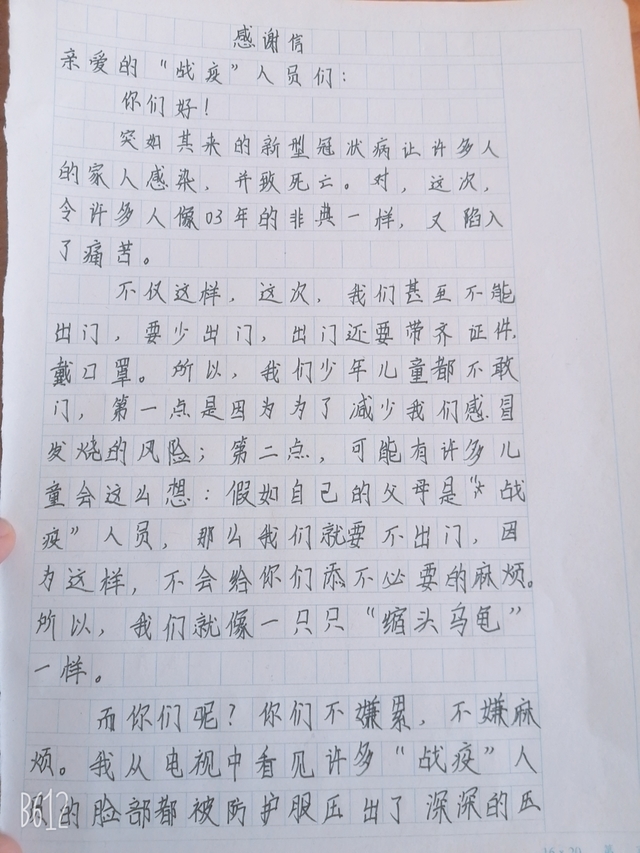 感谢信
亲爱的“战疫”人员们：
你们好！
突如其来的新型冠状病让许多人
的家人感染，并致死亡。对，这次，
令许多人像03年的非典一样，又陷入
了痛苦。
不仅这样，这次，我们甚至不能
出门，要少出门，出门还要带齐证件，
戴口罩。所以，我们少年儿童都不敢
门，第一点是因为为了减少我们感冒
发烧的风险；第二点，可能有许多儿
童会这么想：假如自己的父母是“战
疫”人员，那么我们就要不出门，因
为这样，不会给你们添不必要的麻烦。
所以，我们就像一只只“缩头乌龟”
一样。
而你们呢？你们不嫌累，不嫌麻
烦。我从电视中看见许多“战疫”人
员的脸部都被防护服压出了深深的压
B612